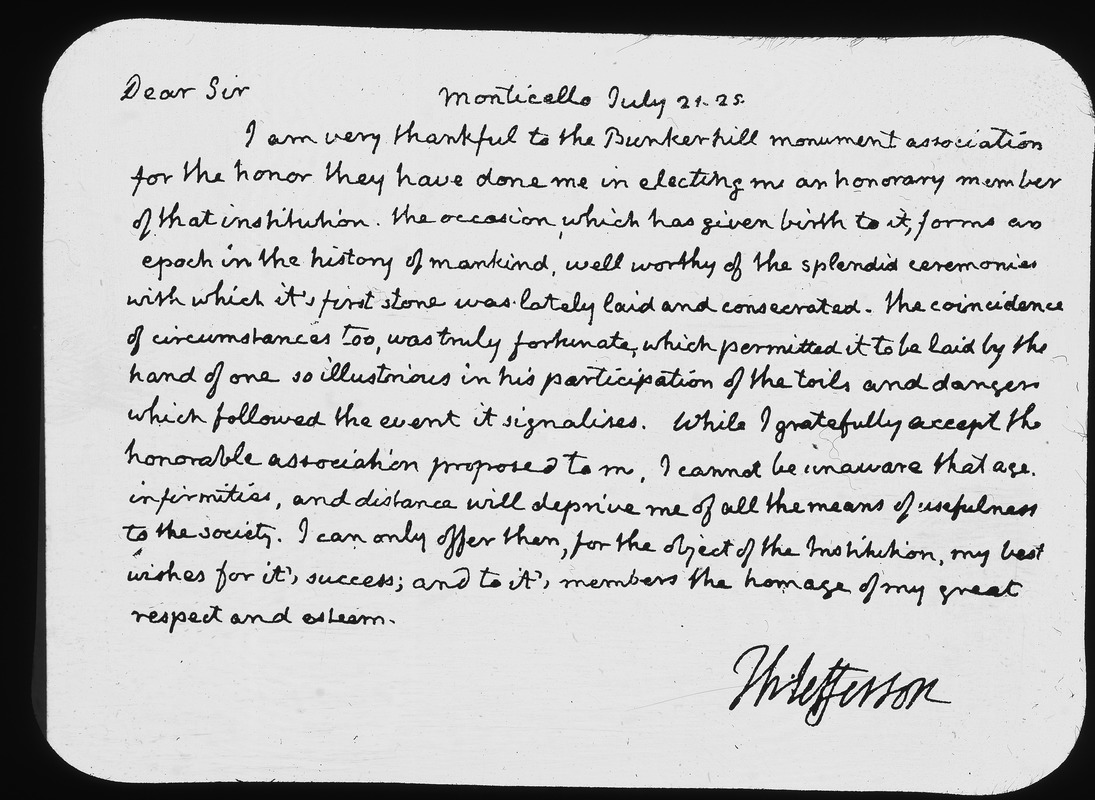 Dear Sir Monticello July 21. 25.
I am very thankful to the Bunkerhill monument association
for the honor they have done me in electing me an honorary member
of that institution. the occasion, which has given birth to it, forms an
epoch in the history of mankind, well worthy of the splendid ceremonies
with which it's first stone was lately laid and consecrated. the coincidence
of circumstances too, was truly fortunate, which permitted it to be laid by the
hand of one so illustrious in his participation of the toils and dangers
which followed the event it signalises. While I gratefully accept the
honorable association proposed to me, I cannot be unaware that age.
infirmities, and distance will deprive me of all the means of usefulness
to the society. I can only offer then, for the object of the Institution, my best
wishes for it's success; and to it's members the homage of my great
respect and esteem.
Th: Jefferson